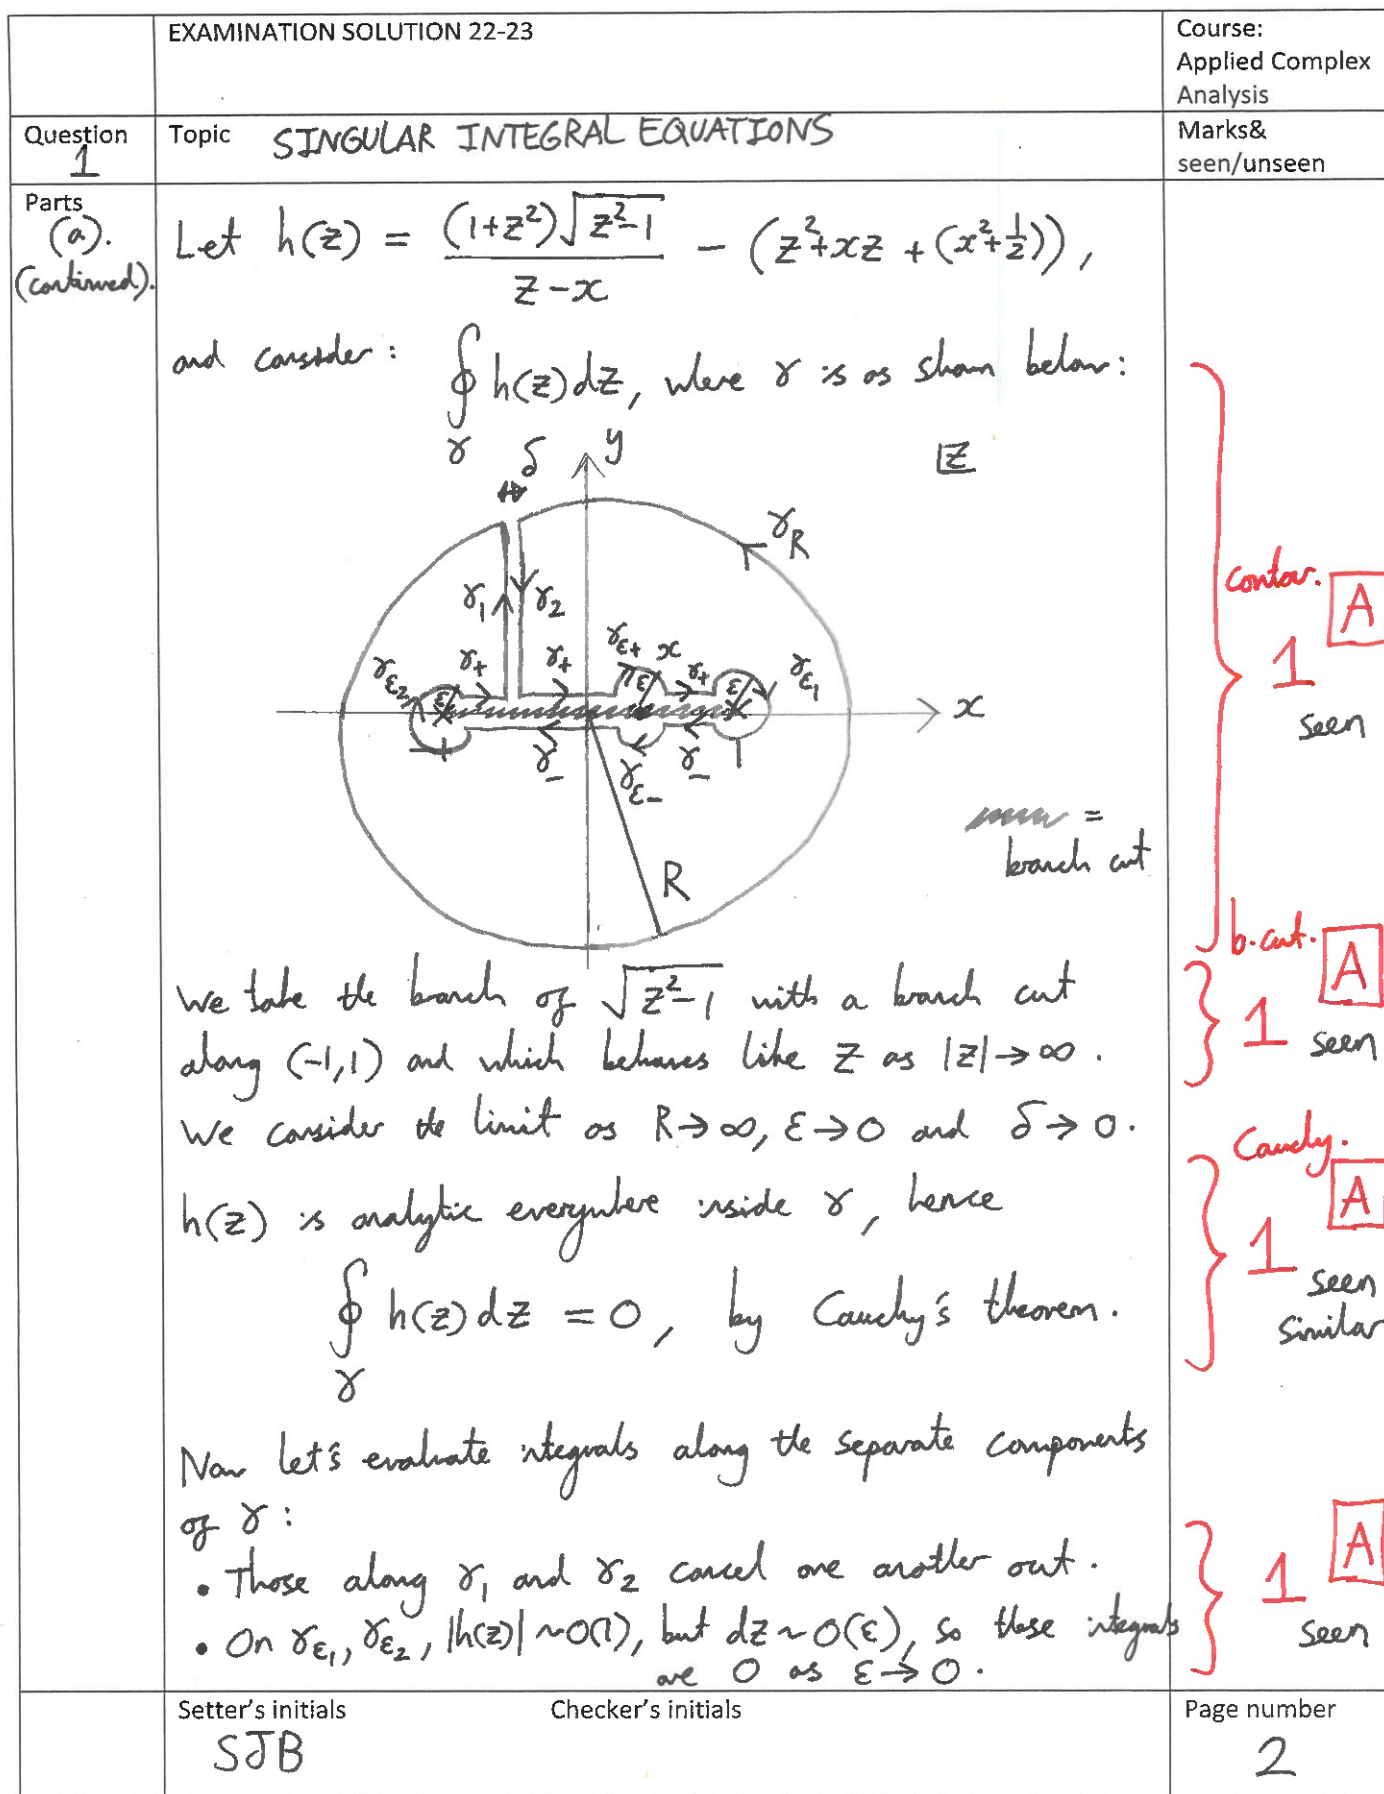 EXAMINATION SOLUTION 22-23
Course:
Applied Complex
Analysis
Question
1
Topic SINGULAR INTEGRAL EQUATIONS
Marks&
seen/unseen
Parts
(a).
(continued).
Let h(z) = (1+z²)√(z²-1) / (z-x) - (z²+xz+(x²+½)),
and consider: ∮_γ h(z)dz, where γ is as shown below:
δ
y
z
γ_R
γ₁
γ₂
γ_ε₂
γ₊
γ₊
γ_ε+
x
γ₊
γ_ε₁
ε
ε
ε
x
-1
γ₋
γ_ε-
γ₋
1
R
= branch cut
contour. A
1
seen
We take the branch of √(z²-1) with a branch cut
along (-1,1) and which behaves like z as |z|→∞.
b.cut. A
1
seen
We consider the limit as R→∞, ε→0 and δ→0.
h(z) is analytic everywhere inside γ, hence
∮_γ h(z)dz = 0, by Cauchy's theorem.
Cauchy. A
1
seen
similar
Now let's evaluate integrals along the separate components
of γ:
• Those along γ₁ and γ₂ cancel one another out.
• On γ_ε₁, γ_ε₂, |h(z)|~O(1), but dz~O(ε), so these integrals
are 0 as ε→0.
A
1
seen
Setter's initials
SJB
Checker's initials
Page number
2